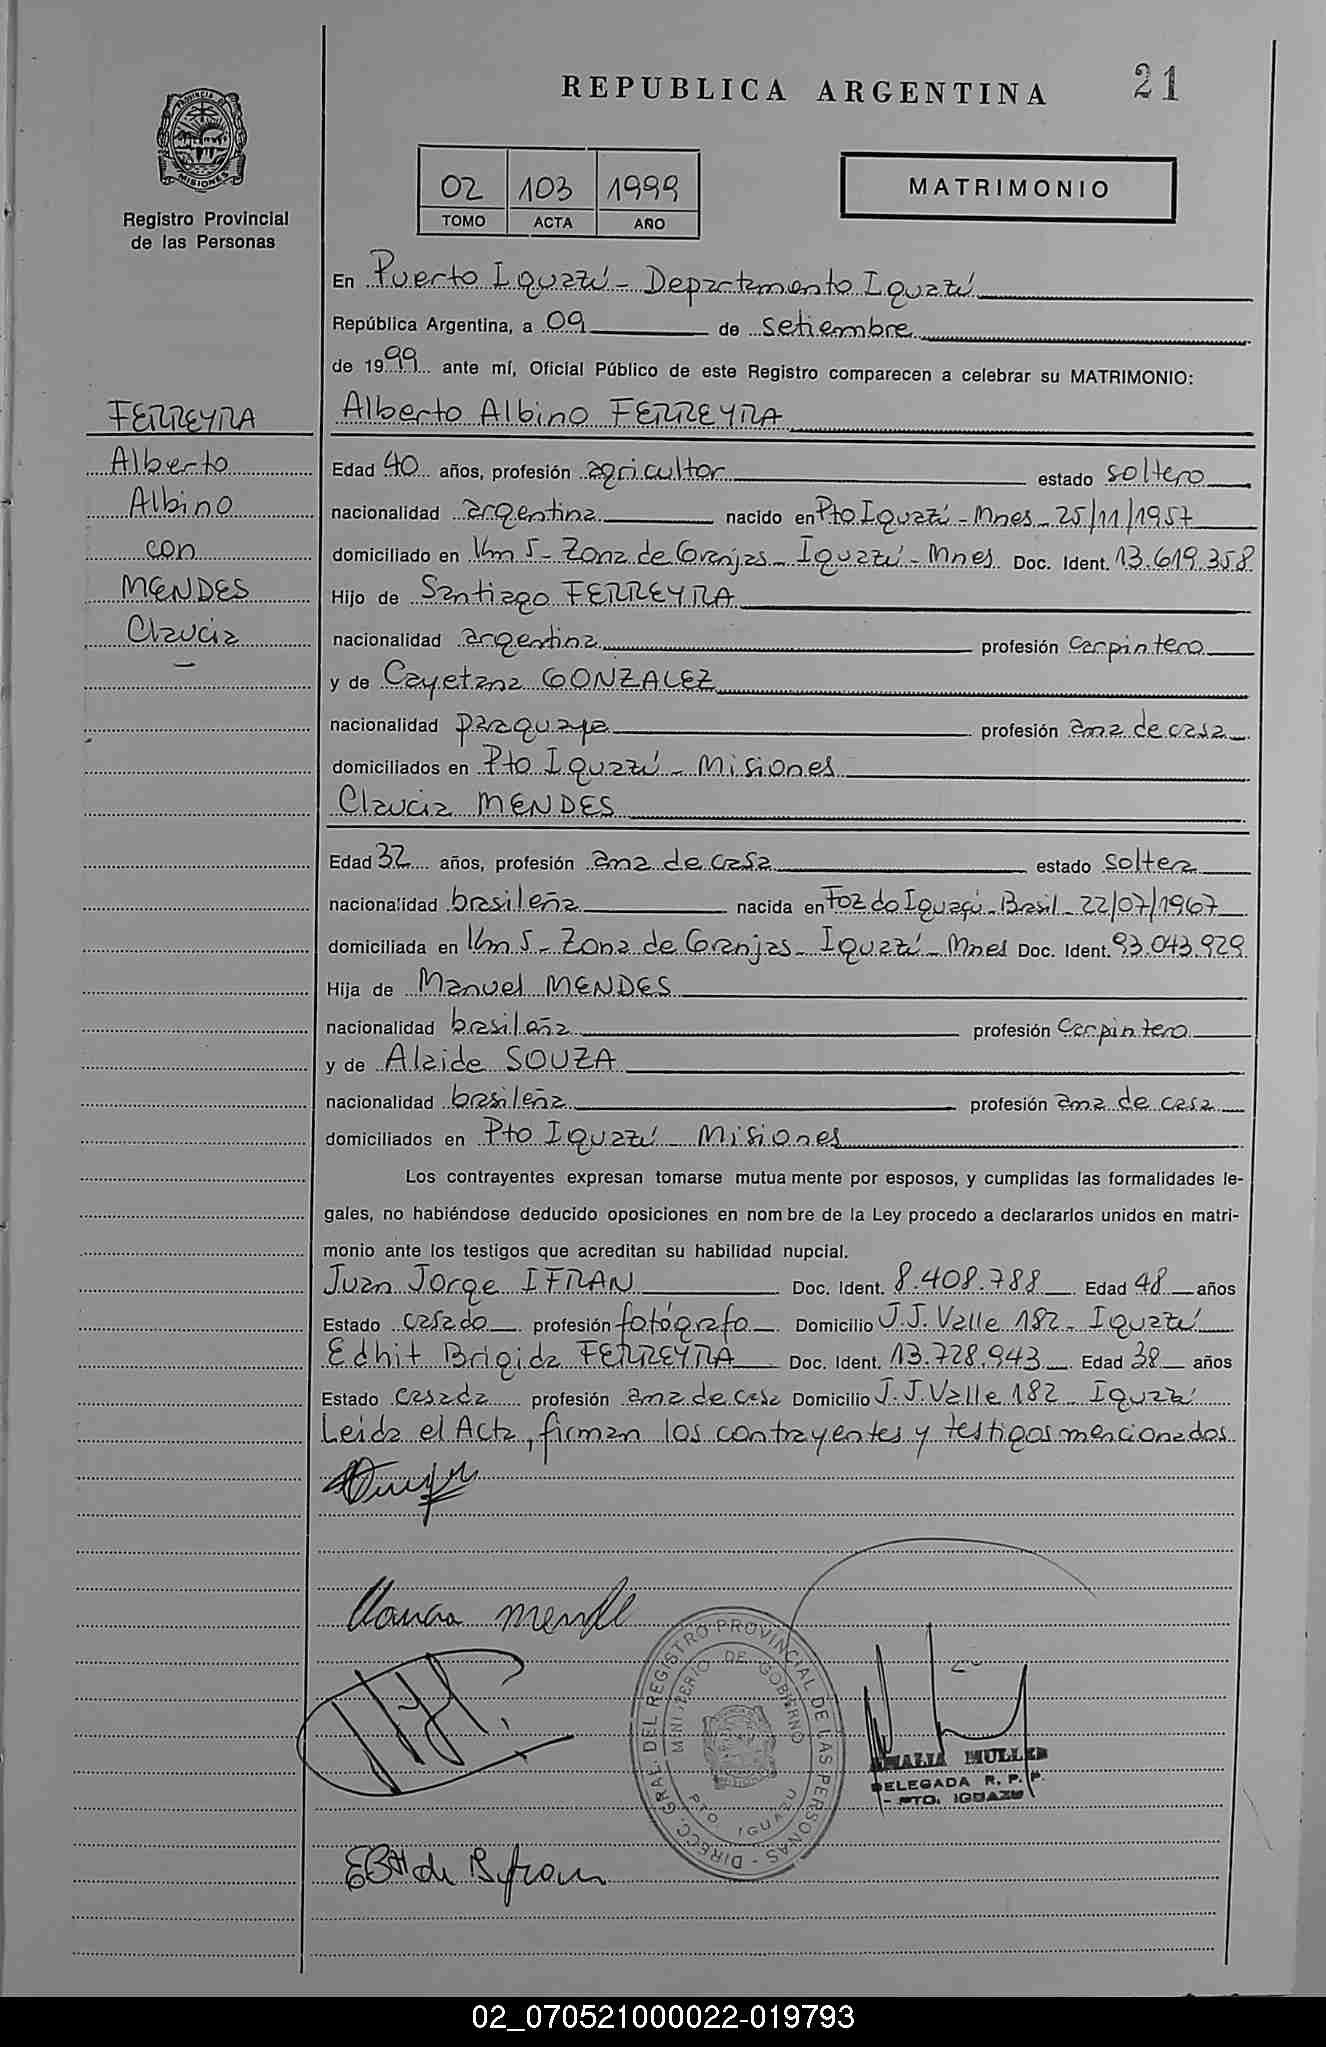 REPUBLICA ARGENTINA
21
PROVINCIA DE
MISIONES
Registro Provincial
de las Personas
02 103 1999
TOMO ACTA AÑO
MATRIMONIO
En Puerto Iguazú - Departamento Iguazú
República Argentina, a 09 de setiembre
de 1999 ante mí, Oficial Público de este Registro comparecen a celebrar su MATRIMONIO:
FERREYRA
Alberto
Albino
con
MENDES
Claucia
Alberto Albino FERREYRA
Edad 40 años, profesión agricultor estado soltero
nacionalidad argentina nacido en Pto Iguazú - Mnes - 25/11/1957
domiciliado en Km 5 - Zona de Granjas - Iguazú - Mnes Doc. Ident. 13.619.358
Hijo de Santiago FERREYRA
nacionalidad argentina profesión carpintero
y de Cayetana GONZALEZ
nacionalidad paraguaya profesión ama de casa
domiciliados en Pto Iguazú - Misiones
Claucia MENDES
Edad 32 años, profesión ama de casa estado soltera
nacionalidad brasileña nacida en Foz do Iguaçú - Brasil - 22/07/1967
domiciliada en Km 5 - Zona de Granjas - Iguazú - Mnes Doc. Ident. 93.043.929
Hija de Manuel MENDES
nacionalidad brasileña profesión carpintero
y de Alaide SOUZA
nacionalidad brasileña profesión ama de casa
domiciliados en Pto Iguazú - Misiones
Los contrayentes expresan tomarse mutua mente por esposos, y cumplidas las formalidades le-
gales, no habiéndose deducido oposiciones en nom bre de la Ley procedo a declararlos unidos en matri-
monio ante los testigos que acreditan su habilidad nupcial.
Juan Jorge IFRAN Doc. Ident. 8.408.788 Edad 48 años
Estado casado profesión fotógrafo Domicilio J.J. Valle 182 - Iguazú
Edhit Brigida FERREYRA Doc. Ident. 13.728.943 Edad 38 años
Estado casada profesión ama de casa Domicilio J.J. Valle 182 - Iguazú
Leida el Acta, firman los contrayentes y testigos mencionados
DIRECC. GRAL. DEL REGISTRO PROVINCIAL DE LAS PERSONAS
MINISTERIO DE GOBIERNO
PTO. IGUAZU
AMALIA MULLER
DELEGADA R. P. P.
- PTO. IGUAZU
02_070521000022-019793